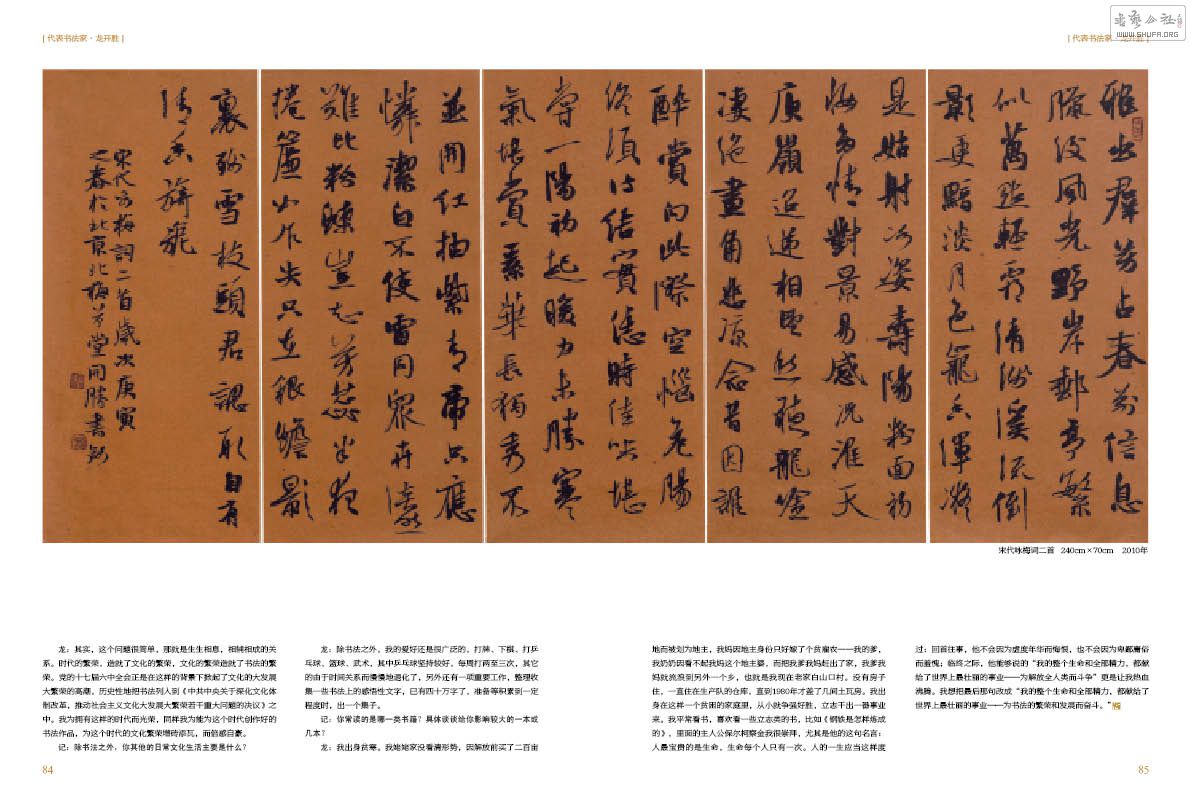 [ 代表书法家·龙开胜 ]
[ 代表书法家·龙开胜 ]
WWW.SHUFA.ORG
雅出羣芳占春前信息
臘後風光野岸郵亭繁
似萬點輕霜清淺溪流倒
影更黯淡月色籠香渾疑
是姑射冰姿壽陽粉面初
妝多情對景易感況淮天
庾嶺迢遞相望愁聽龍吟
淒絕畫角悲涼念昔因誰
醉賞向此際空惱危腸
終須待結實恁時佳味堪
嘗一陽初起暖力未勝寒
氣堪賞素華長獨秀不
並開紅抽紫青帝只應
憐潔白不使雷同眾卉淡然
難比粉蝶豈知芳蕊半夜
捲簾如乍失只在銀蟾影
裏殘雪枝頭君認取自有
清香旖旎
宋代詠梅詞二首歲次庚寅
之春於北京北梅芳堂開勝書
宋代咏梅词二首 240cm×70cm 2010年
龙:其实,这个问题很简单,那就是生生相息,相辅相成的关
系。时代的繁荣,造就了文化的繁荣,文化的繁荣造就了书法的繁
荣。党的十七届六中全会正是在这样的背景下掀起了文化的大发展
大繁荣的高潮,历史性地把书法列入到《中共中央关于深化文化体
制改革,推动社会主义文化大发展大繁荣若干重大问题的决议》之
中。我为拥有这样的时代而光荣,同样我为能为这个时代创作好的
书法作品,为这个时代的文化繁荣增砖添瓦,而倍感自豪。
记:除书法之外,你其他的日常文化生活主要是什么?
龙:除书法之外,我的爱好还是很广泛的。打牌、下棋、打乒
乓球、篮球、武术,其中乒乓球坚持较好,每周打两至三次,其它
的由于时间关系而慢慢地退化了,另外还有一项重要工作,整理收
集一些书法上的感悟性文字,已有四十万字了,准备等积累到一定
程度时,出一个集子。
记:你常读的是哪一类书籍?具体谈谈给你影响较大的一本或
几本?
龙:我出身贫寒。我姥姥家没看清形势,因解放前买了二百亩
地而被划为地主,我妈因地主身份只好嫁了个贫雇农——我的爹,
我奶奶因看不起我妈这个地主婆,而把我爹我妈赶出了家,我爹我
妈就流浪到另外一个乡,也就是我现在老家白山口村。没有房子
住,一直住在生产队的仓库,直到1980年才盖了几间土瓦房。我出
身在这样一个贫困的家庭里,从小就争强好胜,立志干出一番事业
来。我平常看书,喜欢看一些立志类的书,比如《钢铁是怎样炼成
的》,里面的主人公保尔柯察金我很崇拜,尤其是他的这句名言:
人最宝贵的是生命,生命每个人只有一次。人的一生应当这样度
过:回首往事,他不会因为虚度年华而悔恨,也不会因为卑鄙庸俗
而羞愧;临终之际,他能够说的“我的整个生命和全部精力,都献
给了世界上最壮丽的事业——为解放全人类而斗争”更是让我热血
沸腾。我想把最后那句改成“我的整个生命和全部精力,都献给了
世界上最壮丽的事业——为书法的繁荣和发展而奋斗。”
84
85